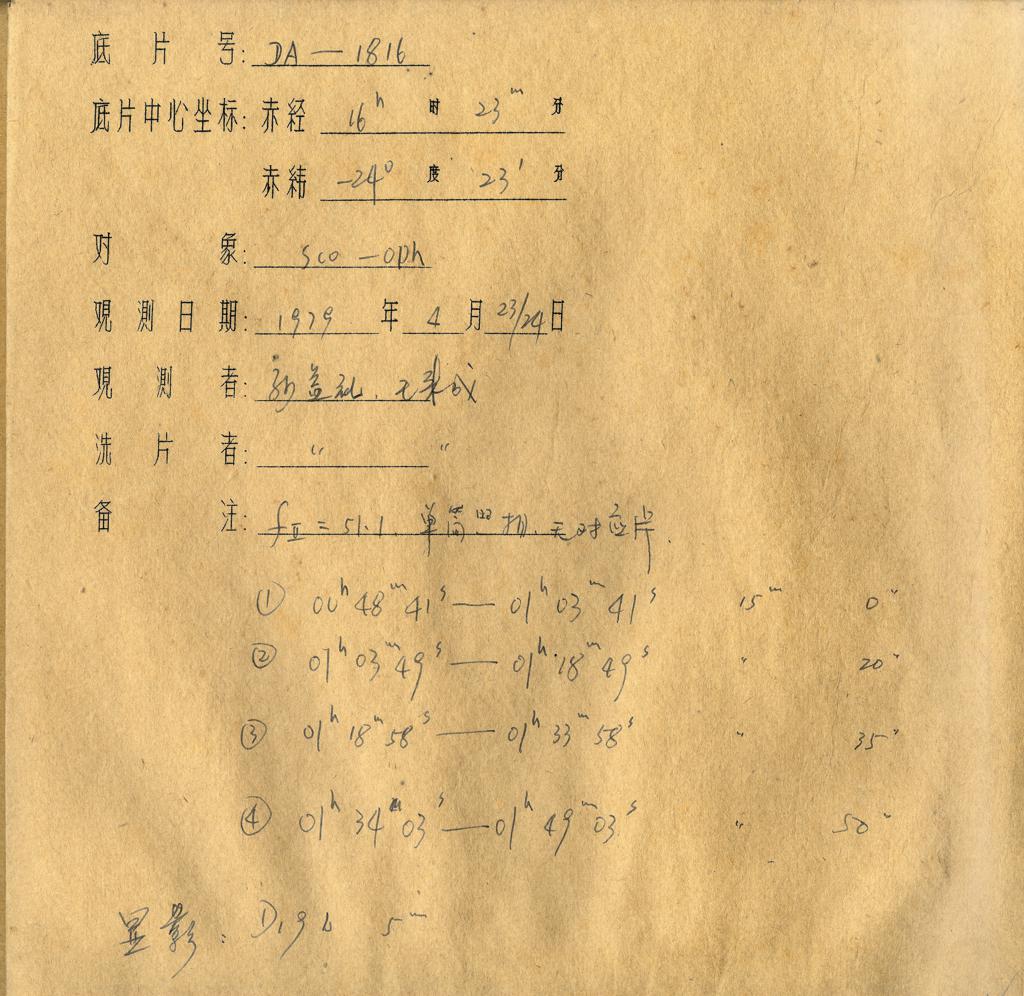 底片号: DA — 1816
底片中心坐标: 赤经 16ʰ 时 23ᵐ 分
赤纬 -24° 度 23′ 分
对象: Sco — Oph
观测日期: 1979 年 4 月 23/24 日
观测者: 益
洗片者: 〃 〃
备注: fⅡ = 51.1. 单筒照相. 无对应片.
① 00ʰ 48ᵐ 41ˢ — 01ʰ 03ᵐ 41ˢ 15ᵐ 0″
② 01ʰ 03ᵐ 49ˢ — 01ʰ 18ᵐ 49ˢ 〃 20″
③ 01ʰ 18ᵐ 58ˢ — 01ʰ 33ᵐ 58ˢ 〃 35″
④ 01ʰ 34ᵐ 03ˢ — 01ʰ 49ᵐ 03ˢ 〃 50″
显影: D19 5ᵐ